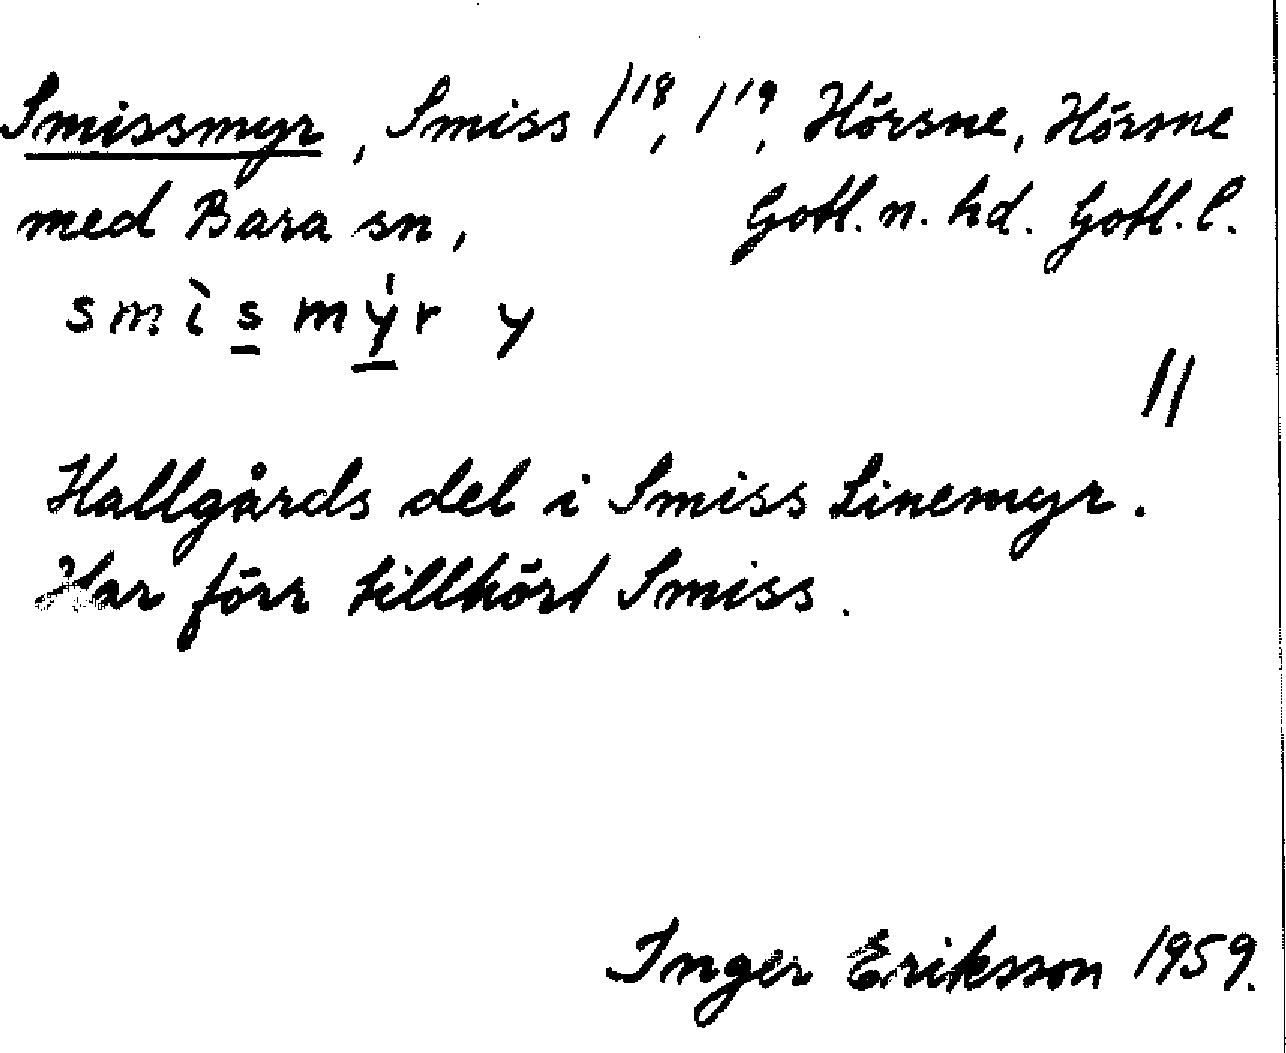 Smissmyr, Smiss 1¹⁸, 1¹⁹, Hörsne, Hörsne
med Bara sn, Gotl. n. hd. Gotl. l.
smìs̲mý̲r y
//
Hallgårds del i Smiss Linemyr.
Har förr tillhört Smiss.
Inger Eriksson 1959.